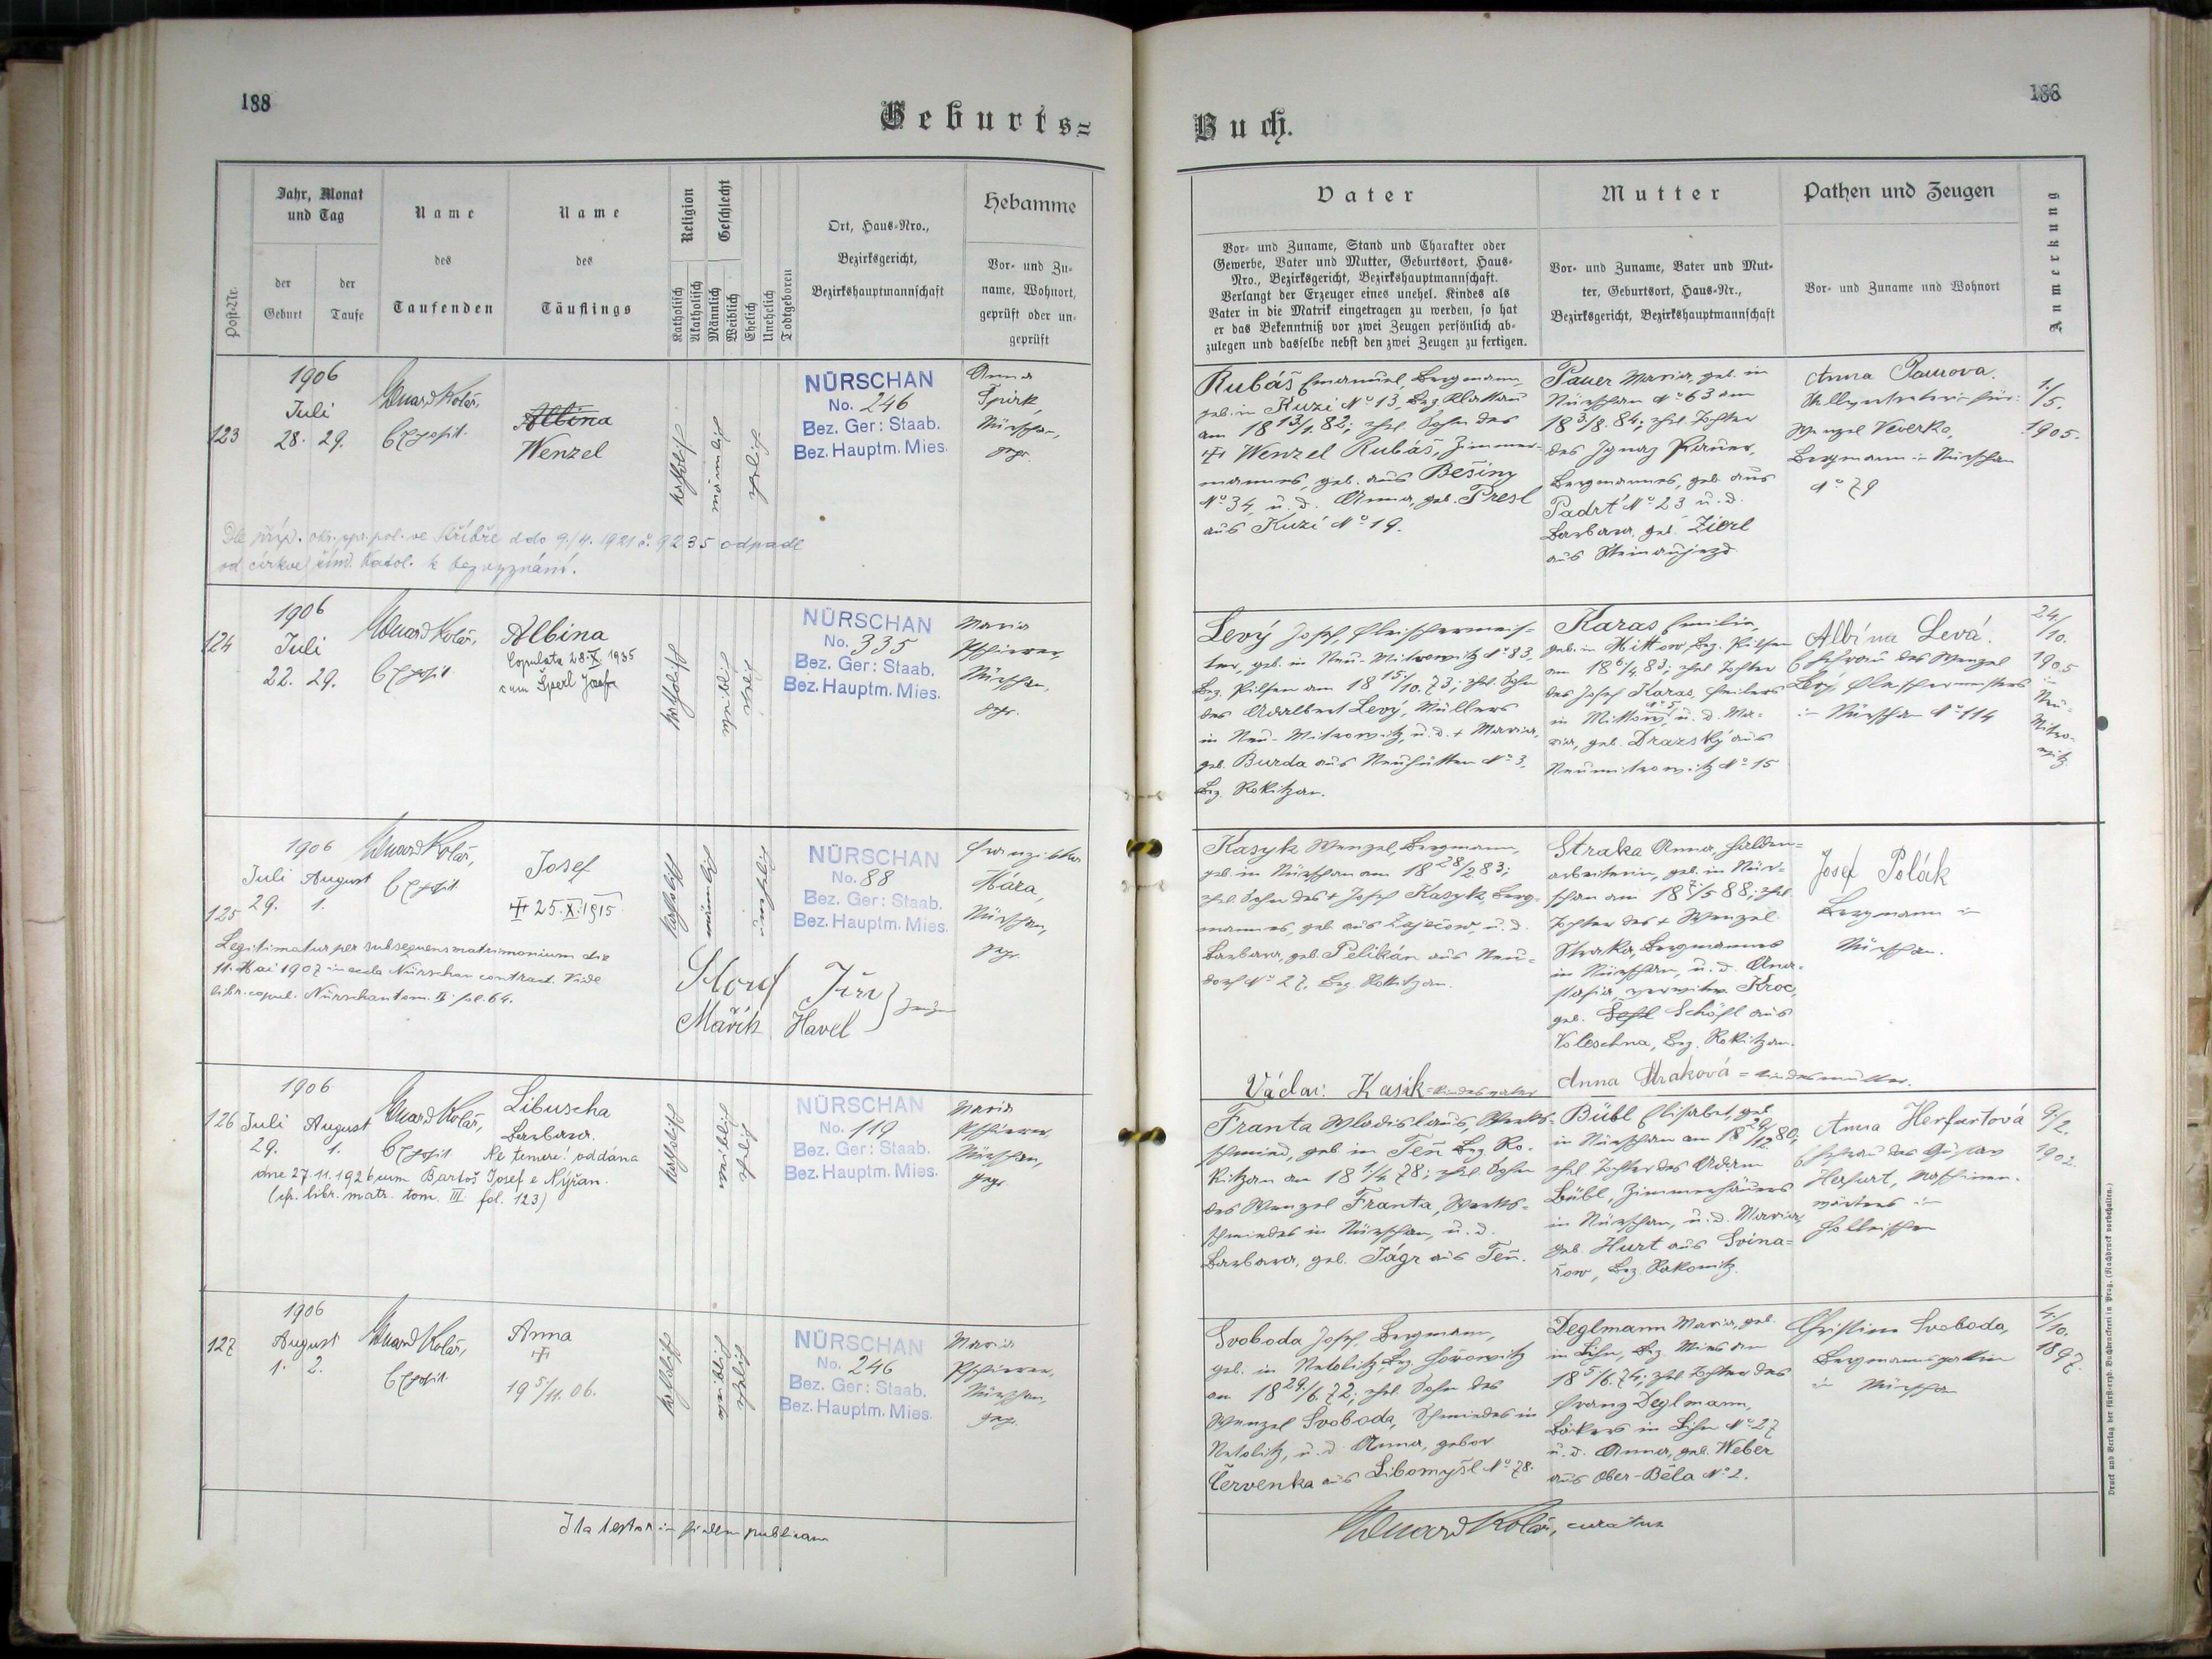 188
Geburts=
Post-Nr.
Jahr, Monat
und Tag
der
Geburt
der
Taufe
Name
des
Taufenden
Name
des
Täuflings
Religion
Katholisch
Akatholisch
Geschlecht
Männlich
Weiblich
Ehelich
Unehelich
Todtgeboren
Ort, Haus-Nro.,
Bezirksgericht,
Bezirkshauptmannschaft
Hebamme
Vor- und Zu-
name, Wohnort,
geprüft oder un-
geprüft
123
1906
Juli
28. 29.
Eduard Kolář,
Exposit.
Albina
Wenzel
katholisch
männlich
ehelich
NÜRSCHAN
No. 246
Bez. Ger: Staab.
Bez. Hauptm. Mies.
Anna
Spirk,
Nürschan,
gepr.
Dle příp. okr. spr. pol. ve Stříbře ddo 9./4. 1921 č. 9235 odpadl
od církve řím. katol. k bezvyznání.
124
1906
Juli
22. 29.
Eduard Kolář,
Exposit.
Albina
Copulata 28. X. 1935
cum Šperl Josef
katholisch
weiblich
ehelich
NÜRSCHAN
No. 335
Bez. Ger: Staab.
Bez. Hauptm. Mies.
Maria
Nürschan,
gepr.
125
1906
Juli August
29. 1.
Eduard Kolář,
Exposit
Josef
25. X. 1915
katholisch
männlich
unehelich
NÜRSCHAN
No. 88
Bez. Ger: Staab.
Bez. Hauptm. Mies.
Franziska
Hára,
Nürschan,
gepr.
Legitimatur per subsequens matrimonium die
11. Mai 1907 in eccla Nürschan contract. Vide
libr. copul. Nürschan tom. II. fol. 64.
Mařík Havel
Zeugen
126
1906
Juli August
29. 1.
Eduard Kolář,
Exposit
Libuscha
Barbara.
Ne temere! oddána
dne 27. 11. 1926 cum Bartoš Josef e Nýřan.
(cf. libr. matr. tom. III fol. 123)
katholisch
weiblich
ehelich
NÜRSCHAN
No. 119
Bez. Ger: Staab.
Bez. Hauptm. Mies.
Maria
Nürschan,
gepr.
127
1906
August
1. 2.
Eduard Kolář,
Exposit.
Anna
19 5/11. 06.
katholisch
weiblich
ehelich
NÜRSCHAN
No. 246
Bez. Ger: Staab.
Bez. Hauptm. Mies.
Maria
Nürschan,
gepr.
Ita testor in fidem publicam
Buch.
Vater
Vor- und Zuname, Stand und Charakter oder
Gewerbe, Vater und Mutter, Geburtsort, Haus-
Nro., Bezirksgericht, Bezirkshauptmannschaft.
Verlangt der Erzeuger eines unehel. Kindes als
Vater in die Matrik eingetragen zu werden, so hat
er das Bekenntniß vor zwei Zeugen persönlich ab-
zulegen und dasselbe nebst den zwei Zeugen zu fertigen.
Mutter
Vor- und Zuname, Vater und Mut-
ter, Geburtsort, Haus-Nr.,
Bezirksgericht, Bezirkshauptmannschaft
Pathen und Zeugen
Vor- und Zuname und Wohnort
Anmerkung
Rubáš Emanuel, Bergmann,
geb. in Kuzi No 13, Bez Klattau
am 18 13/1. 82; ehel. Sohn des
Wenzel Rubáš, Zimmer-
mannes, geb. aus Bešiny
No 34, u. d. Anna, geb. Presl
aus Kuzí No 19.
Pauer Maria, geb. in
Nürschan No 63 am
18 3/8. 84; ehel. Tochter
des Ignaz Pauer,
Bergmannes, geb. aus
Padrť No 23 u. d.
Barbara, geb. Zierl
aus Steinaujezd
Anna Paurova.
Stellvertreterin für:
Wenzel Veverka,
Bergmann in Nürschan
No 79
1./
5.
1905.
Levý Josef, Fleischermeis-
ter, geb. in Neu-Mitrowitz No 83,
Bez. Pilsen am 18 15./10. 73; ehel. Sohn
des Adalbert Levý, Müllers
in Neu-Mitrowitz, u. d. + Maria,
geb. Burda aus Neuhütten No 3,
Bez. Rokitzan.
Karas Emilie,
geb. in Mittow, Bez. Pilsen
am 18 6/4. 83; ehel. Tochter
des Josef Karas,
in Mittow No 5, u. d. Ma-
ria, geb. Drazský aus
Neumitrowitz No 15
Albína Levá.
Ehefrau des Wenzel
Levý, Fleischermeisters
in Nürschan No 114
24/
10.
1905
in
Neu-
Mitro-
witz
Kasyk Wenzel, Bergmann,
geb. in Nürschan am 18 28/2 83;
ehel. Sohn des + Josef Kasyk, Berg-
mannes, geb. aus Zaječow, u. d.
Barbara, geb. Pelikán aus Neu-
dorf No 27, Bez. Rokitzan.
Václav Kasík = Kindesvater
Straka Anna, Halden-
arbeiterin, geb. in Nür-
schan am 18 7/5 88; ehel.
Tochter des + Wenzel
Straka, Bergmannes
in Nürschan, u. d. Ana-
stasia, verwitw. Kroc,
geb. Schöfl aus
Voleschna, Bez. Rokitzan.
Anna Straková = Kindesmutter.
Josef Polák
Bergmann in
Nürschan.
Franta Wladislaus, Werks-
schmied, geb. in Těň Bez. Ro-
kitzan am 18 1/4 78; ehel. Sohn
des Wenzel Franta, Werks-
schmiedes in Nürschan, u. d.
Barbara, geb. Jágr aus Těň.
Bübl Elisabet, geb.
in Nürschan am 18 29/12 80;
ehel. Tochter des Adam
Bübl, Zimmerhäuers
in Nürschan, u. d. Maria,
geb. Hurt aus Svina-
řow, Bez. Rakonitz.
Anna Herfurtová
Ehefrau des Gustav
Herfurt, Maschinen-
wärters in
Holleischen
9/2.
1902.
Svoboda Josef, Bergmann,
geb. in Netolitz, Bez. Hořowitz
am 18 29./6. 72; ehel. Sohn des
Wenzel Svoboda, Schmiedes in
Netolitz, u. d. Anna, gebor
Červenka aus Libomyšl No 78.
Deglmann Maria, geb.
in Lihn, Bez. Mies am
18 5/6. 74; ehel. Tochter des
Franz Deglmann,
Bäkers in Lihn No 27
u. d. Anna, geb. Weber
aus Ober-Běla No 2.
Christine Svoboda,
Bergmannsgattin
in Nürschan
4/
10.
1897.
Eduard Kolář, curatus
Druck und Verlag der fürst-erzb. Buchdruckerei in Prag. (Nachdruck vorbehalten.)